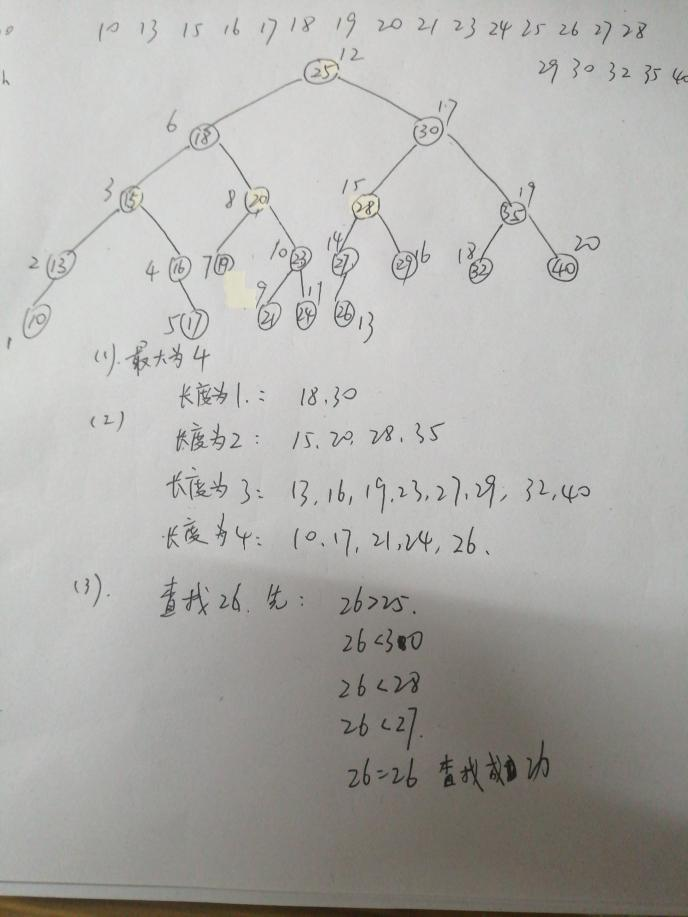 10 13 15 16 17 18 19 20 21 23 24 25 26 27 28
29 30 32 35 40
25 12
6 18 30 17
3 15 8 20 15 28 35 19
2 13 4 16 7 19 10 23 14 27 29 16 18 32 40 20
1 10 5 17 9 21 24 11 26 13
(1). 最大为4
(2) 长度为1.: 18.30
长度为2: 15.20.28.35
长度为3: 13,16,19,23,27,29, 32,40
长度为4: 10.17,21,24,26.
(3). 查找26. 先: 26>25.
26<30
26<28
26<27.
26=26 查找成功